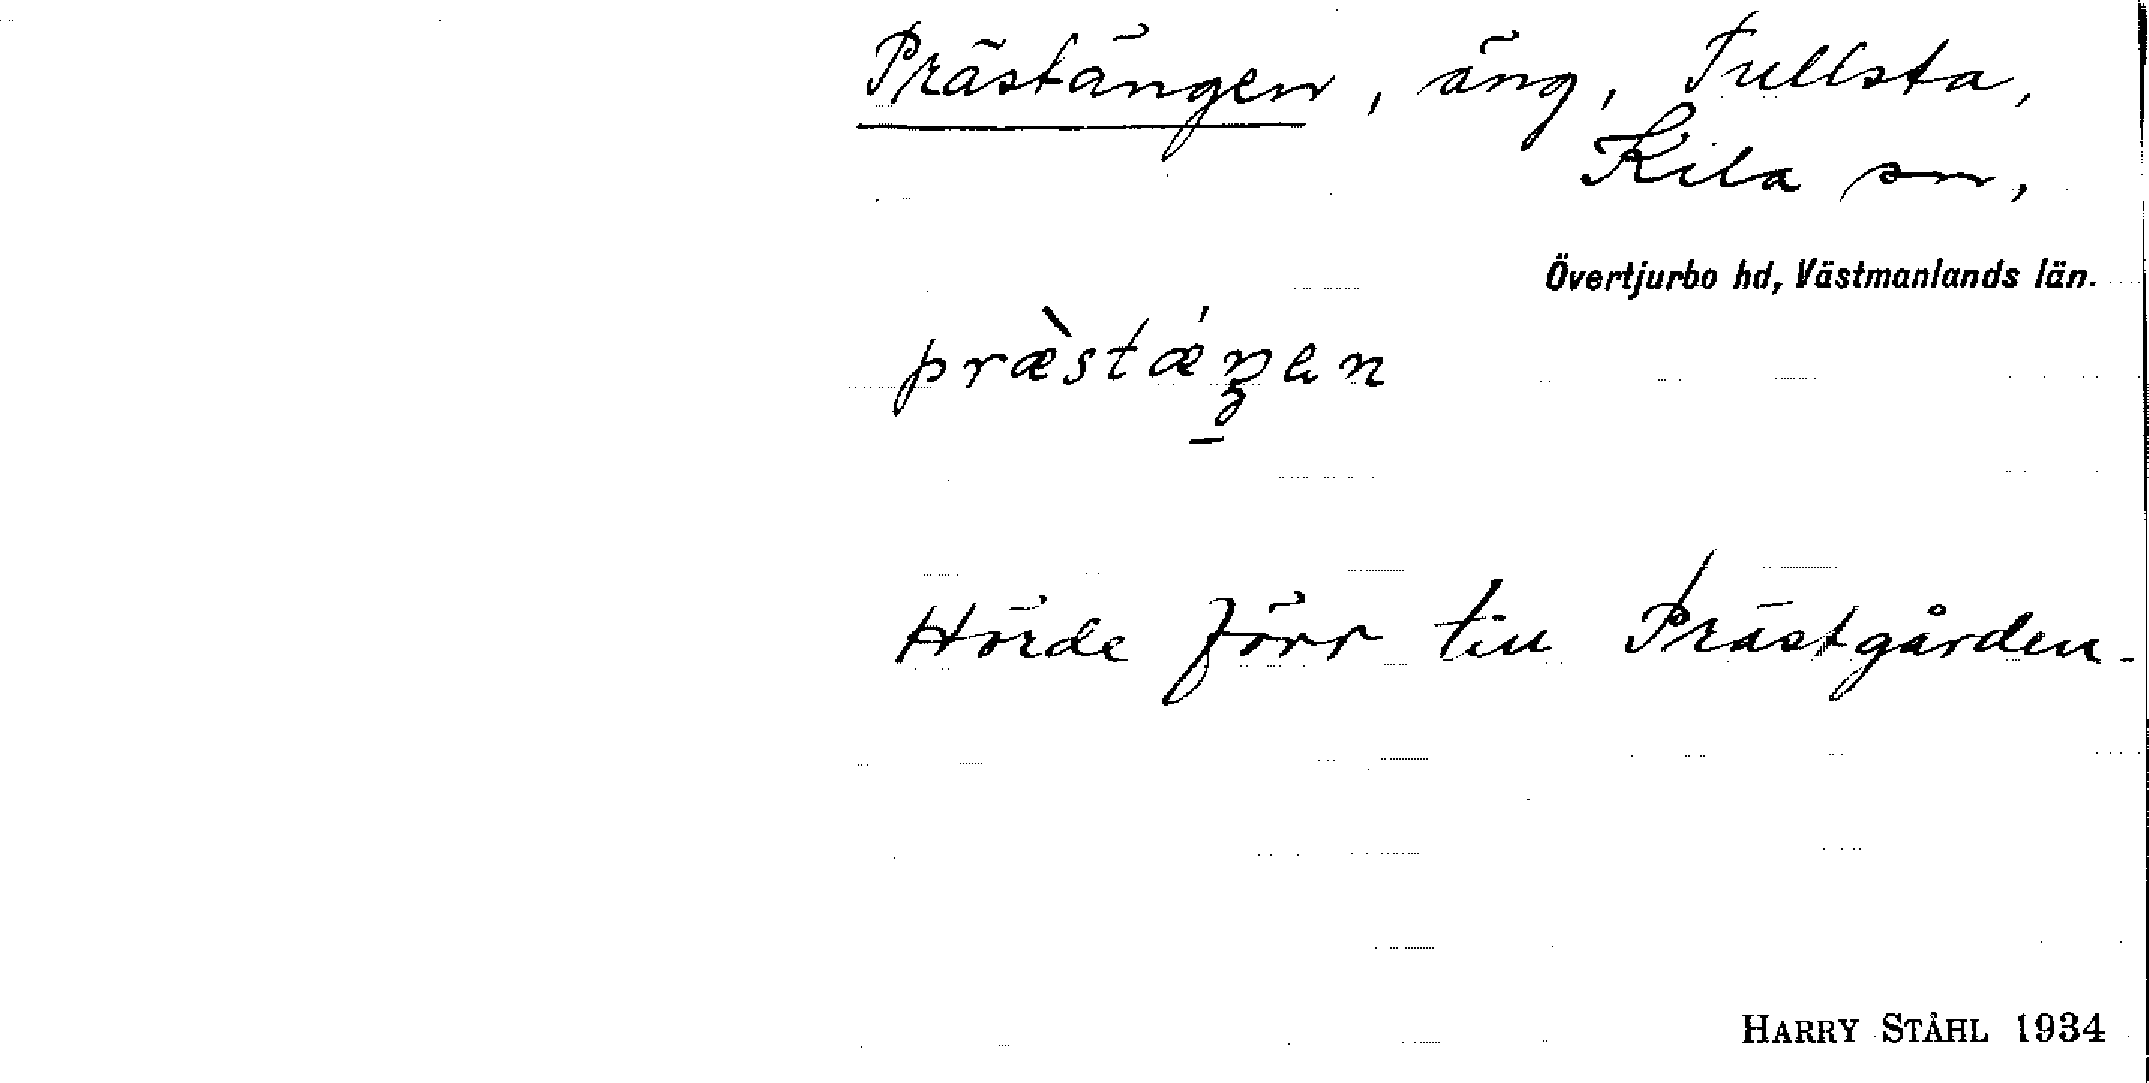 Prästängen, äng, Tullsta,
Kila sn,
Övertjurbo hd, Västmanlands län.
præ̀stǽŋen
Hörde förr till Prästgården.
HARRY STÅHL 1934